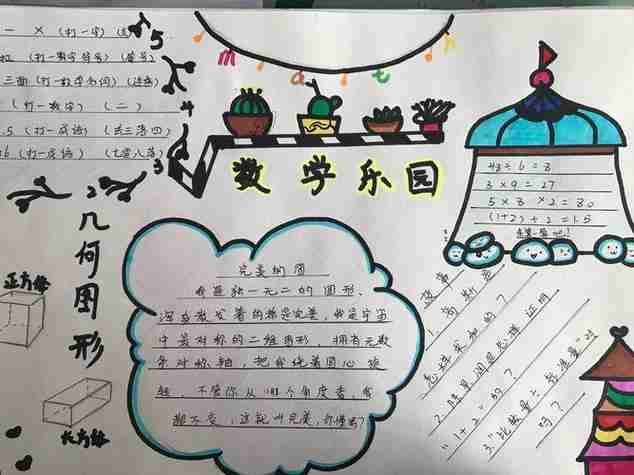 一 × (打一字)
(打一数学符号) (等号)
三面 (打一数学名词)
(打一数字) (二)
5 (打一成语) (丢三落四)
6 (打一成语) (七零八落)
5
4
3
2
m a t h
数学乐园
48÷6=8
3×9=27
5×8×2=80
(1+2)÷2=1.5
来算一算吧!
几何图形
正方体
长方体
完美的圆
我是独一无二的圆形、
浑身散发着的都是完美,我是宇宙
中最对称的二维图形,拥有无数
条对称轴,把我绕着圆心旋
转,不管你从哪个角度看,我
都不变,这就叫完美,你懂吗?
故事
1.高斯是
怎样求和的?
2.陈景润是怎样证明
"1+2"的?
3.
吗?